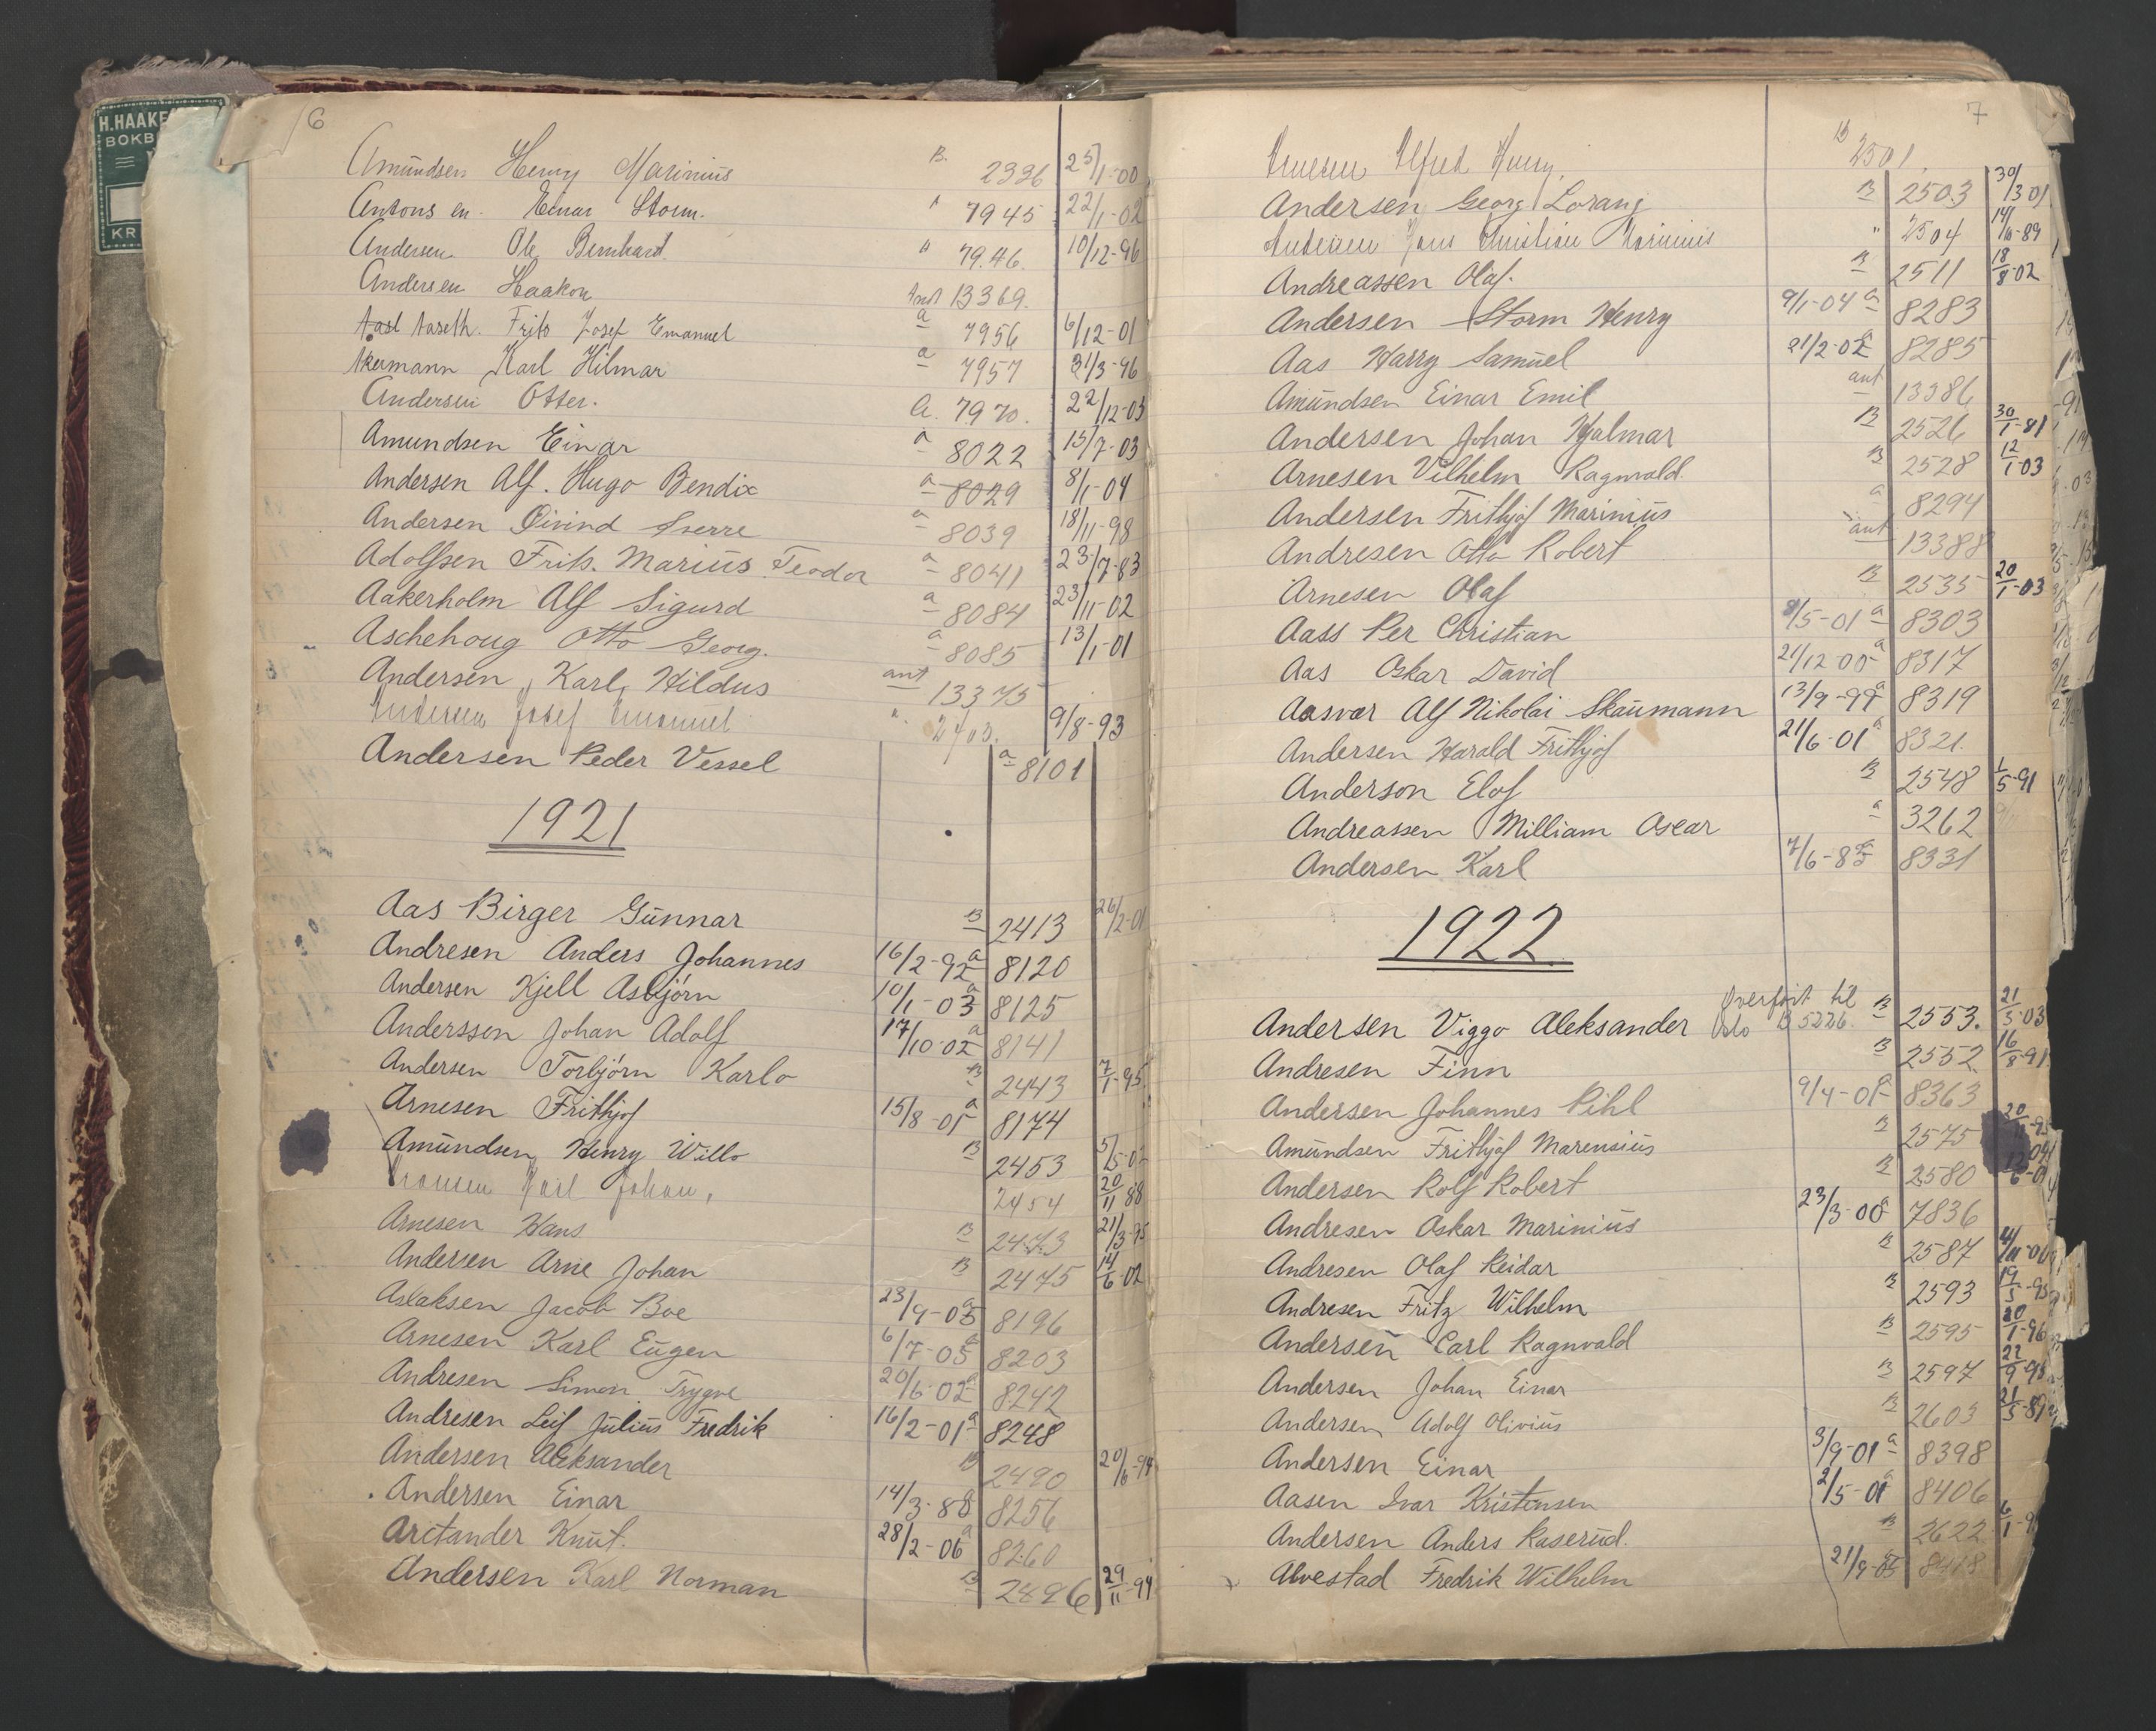 H. HAAKE
BOKB
KR
6
Amundsen Henry Marinius B. 2336 25/1-00
Antonsen Einar Storm. " 7945 22/1-02
Andersen Ole Bernhard. " 7946. 10/12-96
Andersen Haakon Ant 13369.
Fritz Josef Emanuel a 7956 6/12-01
Akermann Karl Hilmar a 7957 31/3-96
Andersen Otter. a. 7970. 22/12-03
Amundsen Einar a 8022 15/7-03
Andersen Alf. Hugo Bendix a 8029 8/1-04
Andersen Øivind Sverre a 8039 18/11-98
Adolfsen Frits. Marius Teodor a 8041 23/7-83
Aakerholm Alf Sigurd a 8084 23/11-02
Aschehoug Otto Georg. a 8085 13/1-01
Andersen, Karl, Hildus ant 13375
Andersen Josef Emanuel 9/8-93
Andersen Peder Vessel a 8101
1921
Aas Birger Gunnar B 2413 26/2-01
Andresen Anders Johannes 16/2-92 a 8120
Andersen Kjell Asbjørn 10/1-03 a 8125
Andersson Johan Adolf 17/10-02 a 8141
Andersen Torbjørn Karlo B 2443 7/1-95
Arnesen Frithjof 15/8-01 a 8174
Amundsen, Henry Willo B 2453 5/5-02
Karl Johan, 2454 20/11 88
Arnesen Hans B 2473 21/3-75
Andersen Arne Johan B 2475 14/6-02
Aslaksen Jacob Boe 23/9-05 a 8196
Arnesen Karl Eugen 6/7-05 a 8203
Andresen Simon Trygve 20/6-02 a 8242
Andresen Leif Julius Fredrik 16/2-01 a 8248
Andersen Aleksander B 2490 20/6-94
Andersen Einar 14/3-88 a 8256
Arctander Knut. 28/2-06 a 8260
Andersen Karl Norman B 2496 29/11-94
7
Alfred Henry, B 2501
Andersen Georg Lorang B 2503 30/3 01
Andersen Hans Christian Marinius " 2504 14/6-89
Andreassen Olaf. B 2511 18/8-02
Andersen Storm Henry 9/1-04 a 8283
Aas Harry Samuel 21/2-02 a 8285
Amundsen Einar Emil ant 13386
Andersen Johan Hjalmar B 2526 30/1-81
Arnesen Vilhelm Ragnvald. B 2528 12/1-03
Andersen Frithjof Marinius a 8294
Andresen Otto Robert ant 13388
Arnesen Olaf B 2535 20/1-03
Aass Per Christian 9/5-01 a 8303
Aas Oskar David 21/12-00 a 8317
Aasvær Alf Nikolai Skaumann 13/9-99 a 8319
Andersen Harald Frithjof 21/6-01 a 8321.
Anderson Elof B 2548 1/5-91
Andreassen William Oscar a 3262
Andersen Karl 7/6-85 a 8331
1922
Overført til
Andersen Viggo Aleksander Oslo B 5226. B 2553. 21/3-03
Andresen Finn B 2552. 16/8-91
Andersen Johannes Pihl 9/4-01 a 8363
Amundsen Frithjof Marensius B 2575
Andersen Rolf Robert B 2580
Andresen Oskar Marinius 23/3-00 a 7836
Andresen Olaf Reidar B 2587
Andresen Fritz Wilhelm B 2593 19/5-95
Andersen Carl Ragnvald B 2595 20/1-96
Andersen Johan Einar B 2597 22/9-98
Andersen Adolf Olivius B 2603 21/5-89
Andersen Einar 3/9-01 a 8398
Aasen Ivar Kristensen 2/5-01 a 8406
Andersen Anders Kaserud. B 2622
Alvestad Fredrik Wilhelm 21/9-05 a 8418